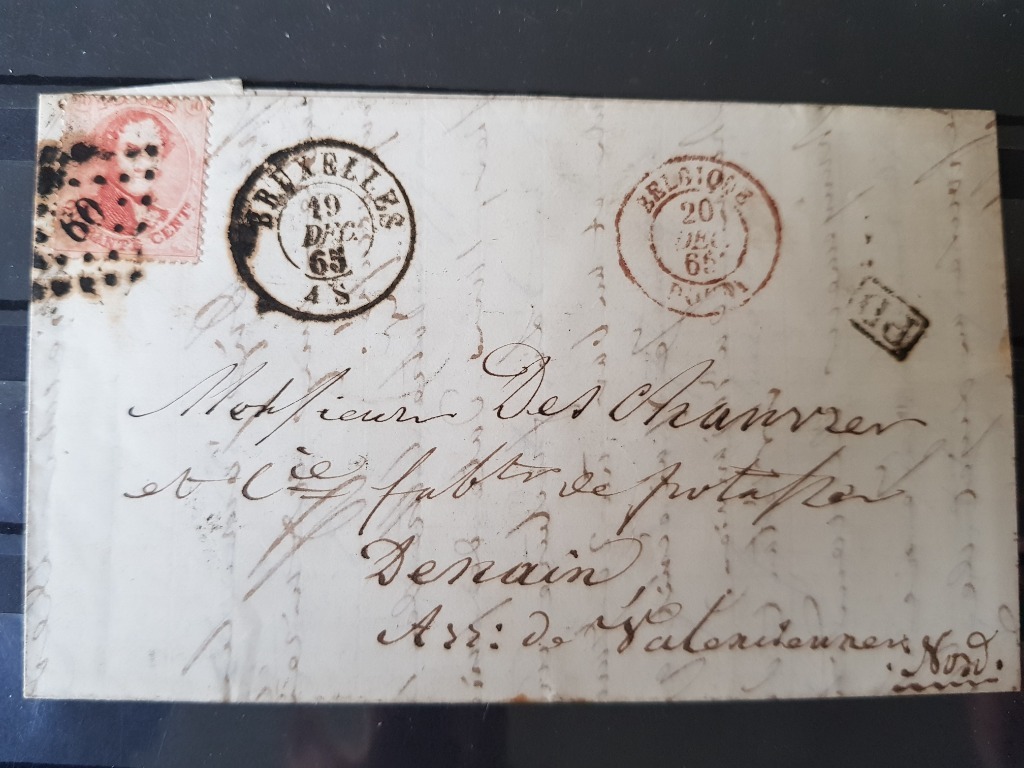 60
CENTS
BRUXELLES
19
DEC.
65
4 S
BELGIQUE
20
DEC.
65
PD
Monsieur Deschanvrer
et Cie fabts de potasse
Denain
Arr: de Valenciennes
Nord.